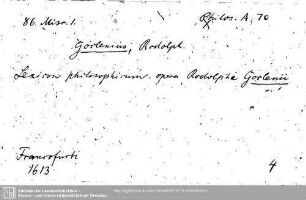 86. Misc. 1.
Philos. A, 70
Goclenius, Rodolph.
Lexicon philosophicum. opera Rodolphi Goclenii
Francofurti
1613
4
Sächsische Landesbibliothek –
Staats- und Universitätsbibliothek Dresden